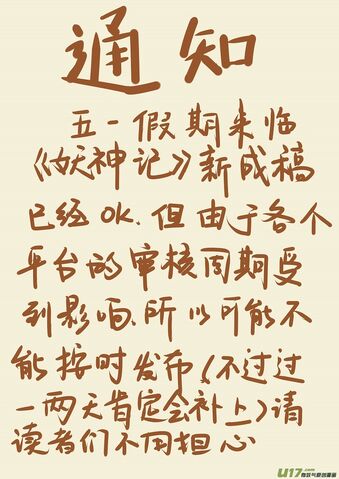 通知
五一假期来临
《妖神记》新成稿
已经OK,但由于各个
平台的审核周期受
到影响,所以可能不
能按时发布(不过过
一两天肯定会补上)请
读者们不用担心
U17.com
有妖气原创漫画